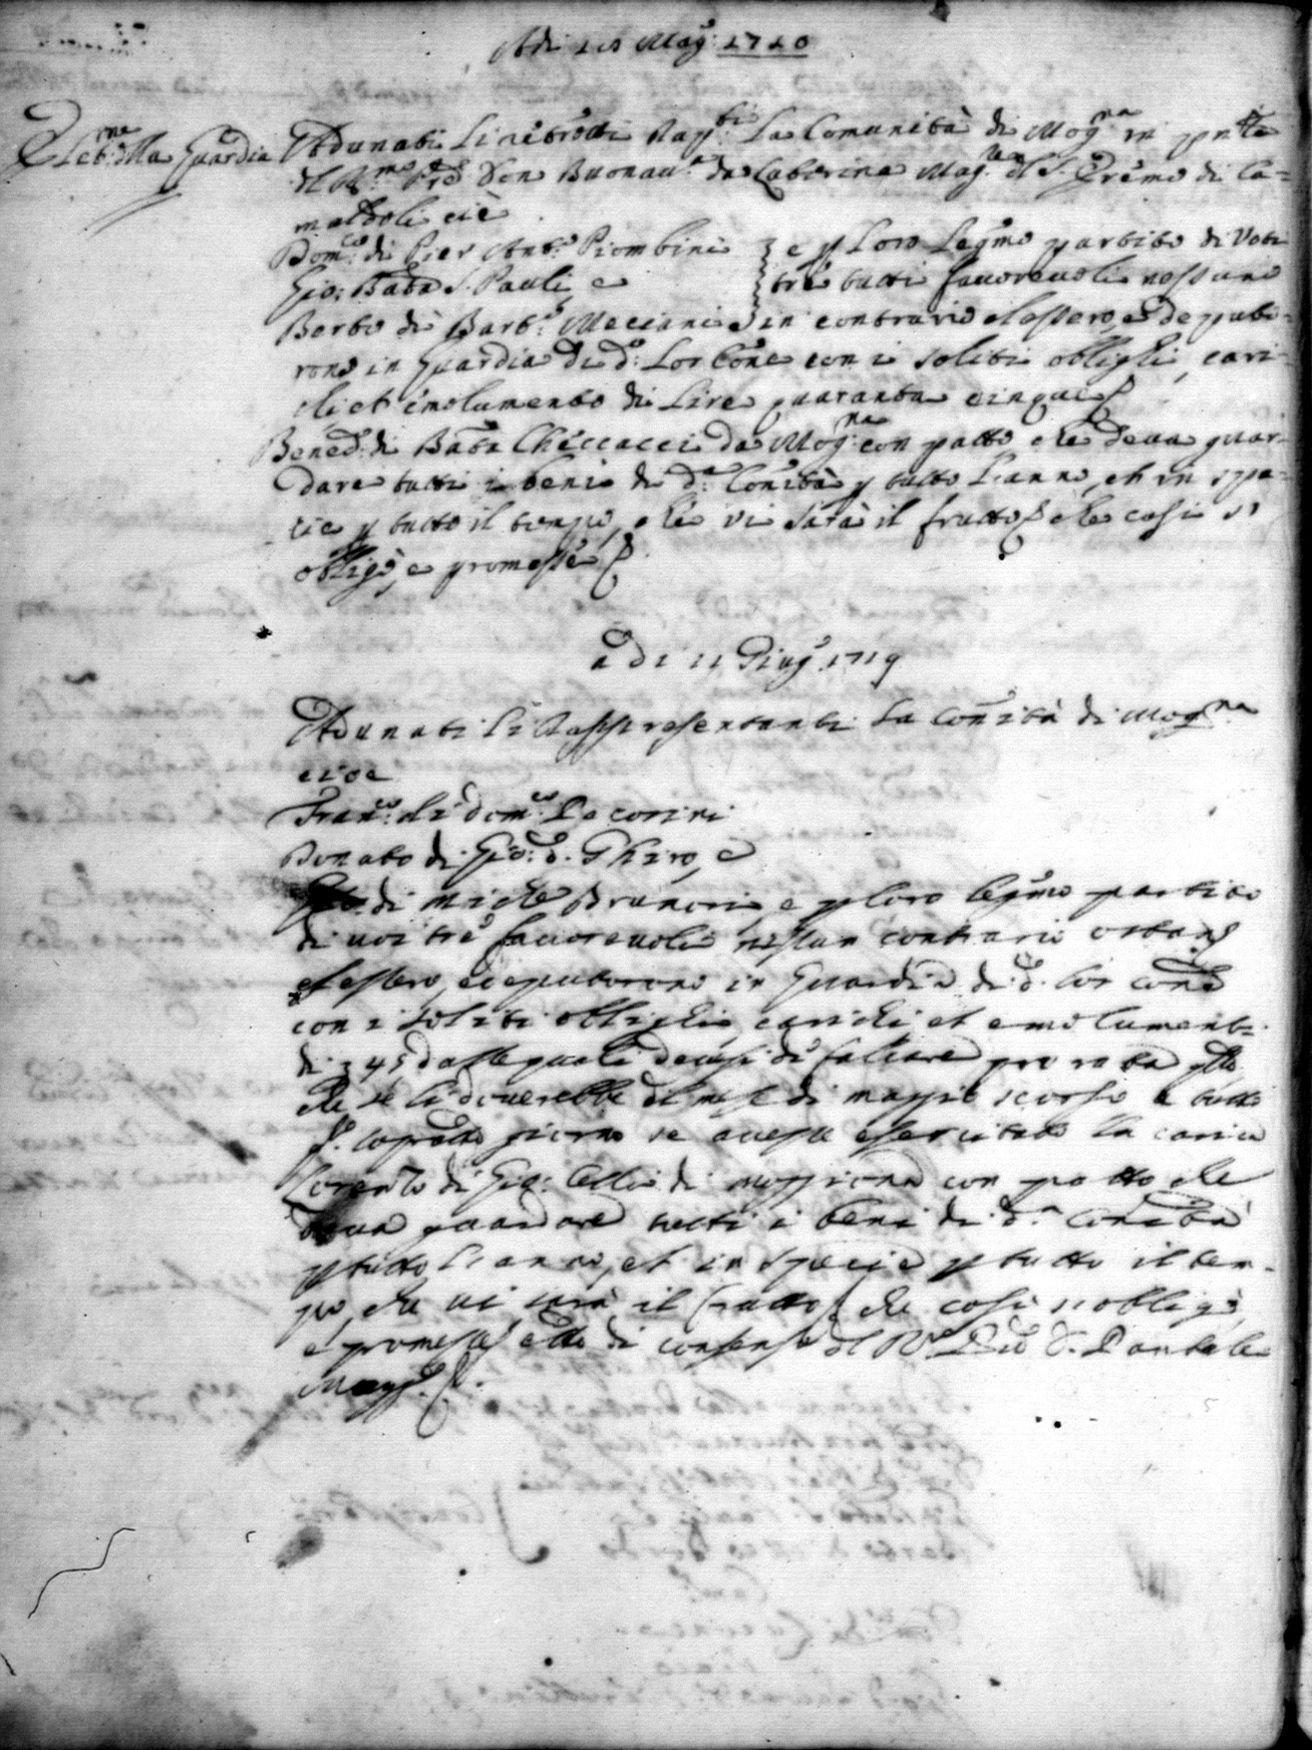 Adi Mag:o 1710
Elet:ne della Guardia
Adunati Li Rap:ti La Comunità di Mog:na in
il R:mo Pre Don Buonau:a da Caterina Mag:e del S. Eremo di Ca=
maldoli cioè
Dom:co di Pier Ant:o Piombini
Gio: Batta Pauli e
Berto di Barb:a Meciani e
e p Loro Leg:mo partito di Voti
trè tutti fauoreuoli nessuno
in contrario elessero, e deputo=
rono in Guardia di d:a Lor Con:e con i soliti oblighi, cari=
chi et emolumento di Lire quaranta cinque
Bened:o di Batta Chiccacci da Mog:na con patto che deua guar=
dare tutti i beni di d:a Con:ità p tutto L'anno, et in spe=
tie p tutto il tempo, che vi sarà il frutto che cosi si
obligò, e promesse
a di 11 Giug:o 1719
Adunati Li Rappresentanti La Con:ità di Mog:na
cioe
Fran:co di dom:co Pecorini
Donato di Gio: Ghiro, e
di Miche Brunori e p loro leg:mo partito
di uoti tre fauoreuoli nissun contrario
elessero, e deputorono in Guardia di d:a lor
con i soliti oblighi, carichi et emolumenti
di 45 dalle quali deuesi di falcare pro rata
che se li douerebbe di mese di maggio scorso a tutto
giorno se auesse esercitato la carica
Lorenzo di Gio: Cellii di moggiona con patto che
deua guardare tutti i beni di d:a Con:ità
p tutto L'anno, et in spezie p tutto il tem=
po, che ui sarà il frutto che cosi si obligò
e promesse di consenso del R:o
Magg:e